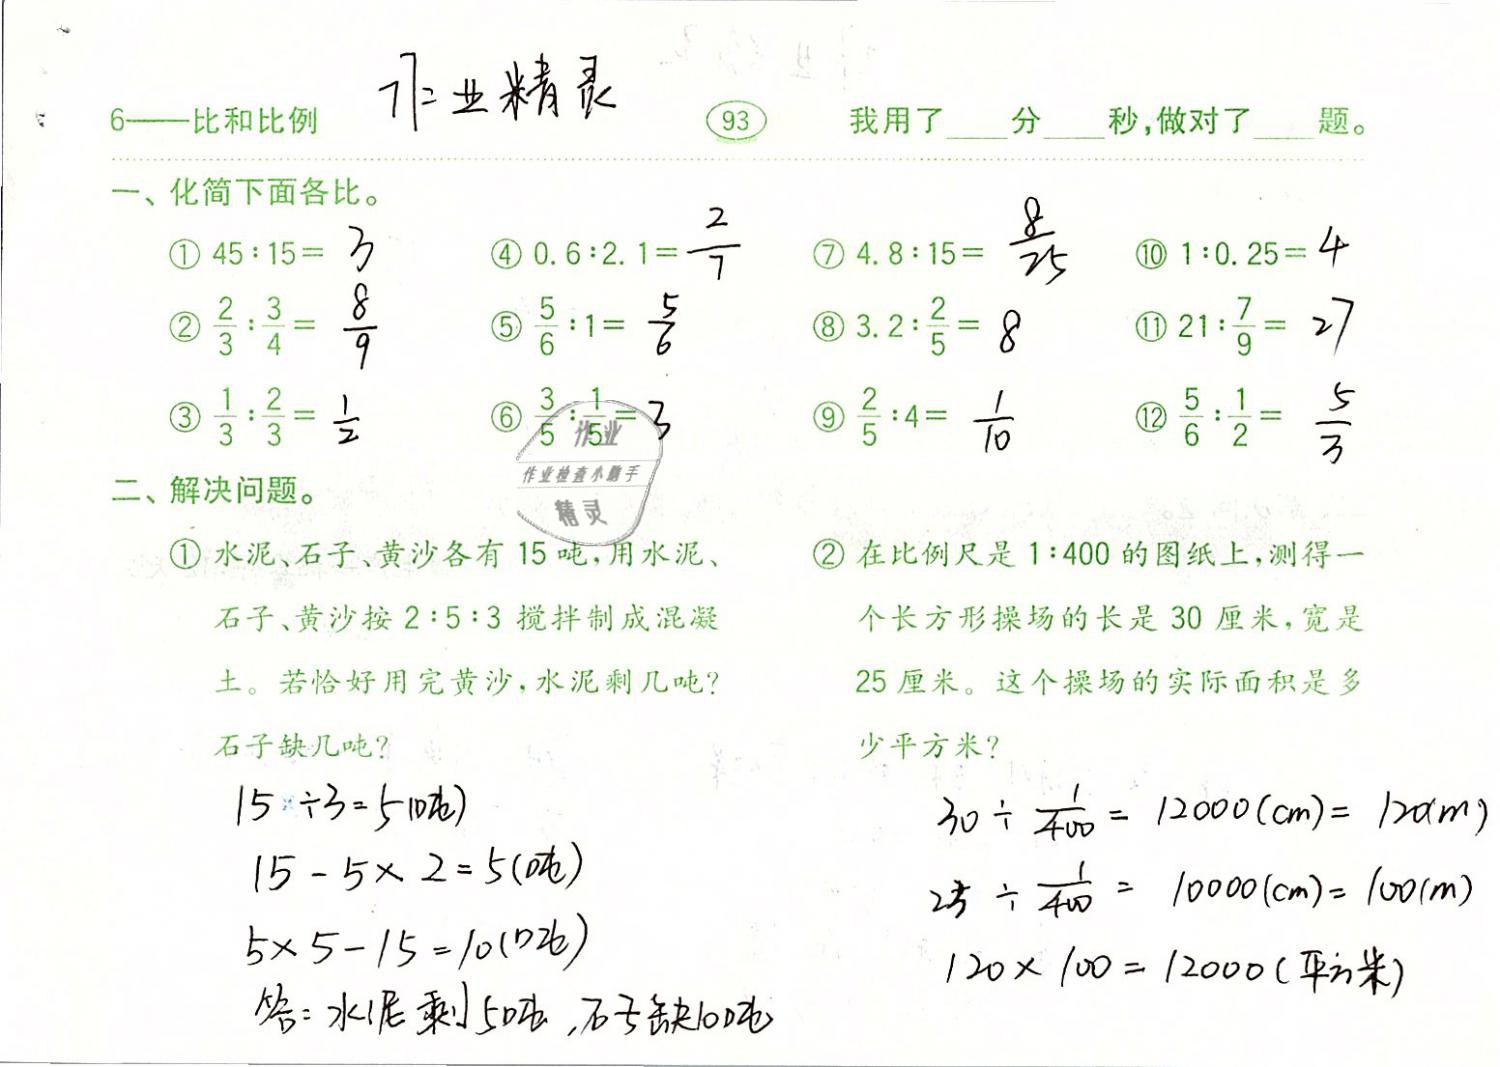 作业精灵
6——比和比例 93 我用了____分____秒,做对了____题。
一、化简下面各比。
① 45:15= 3 ④ 0.6:2.1= 2/7 ⑦ 4.8:15= 8/25 ⑩ 1:0.25= 4
② 2/3:3/4= 8/9 ⑤ 5/6:1= 5/6 ⑧ 3.2:2/5= 8 ⑪ 21:7/9= 27
③ 1/3:2/3= 1/2 ⑥ 3/5:1/5= 3 ⑨ 2/5:4= 1/10 ⑫ 5/6:1/2= 5/3
作业
作业检查小助手
精灵
二、解决问题。
① 水泥、石子、黄沙各有 15 吨,用水泥、
石子、黄沙按 2:5:3 搅拌制成混凝
土。若恰好用完黄沙,水泥剩几吨?
石子缺几吨?
15÷3=5(吨)
15-5×2=5(吨)
5×5-15=10(吨)
答:水泥剩5吨,石子缺10吨
② 在比例尺是 1:400 的图纸上,测得一
个长方形操场的长是 30 厘米,宽是
25 厘米。这个操场的实际面积是多
少平方米?
30÷1/400=12000(cm)=120(m)
25÷1/400=10000(cm)=100(m)
120×100=12000(平方米)